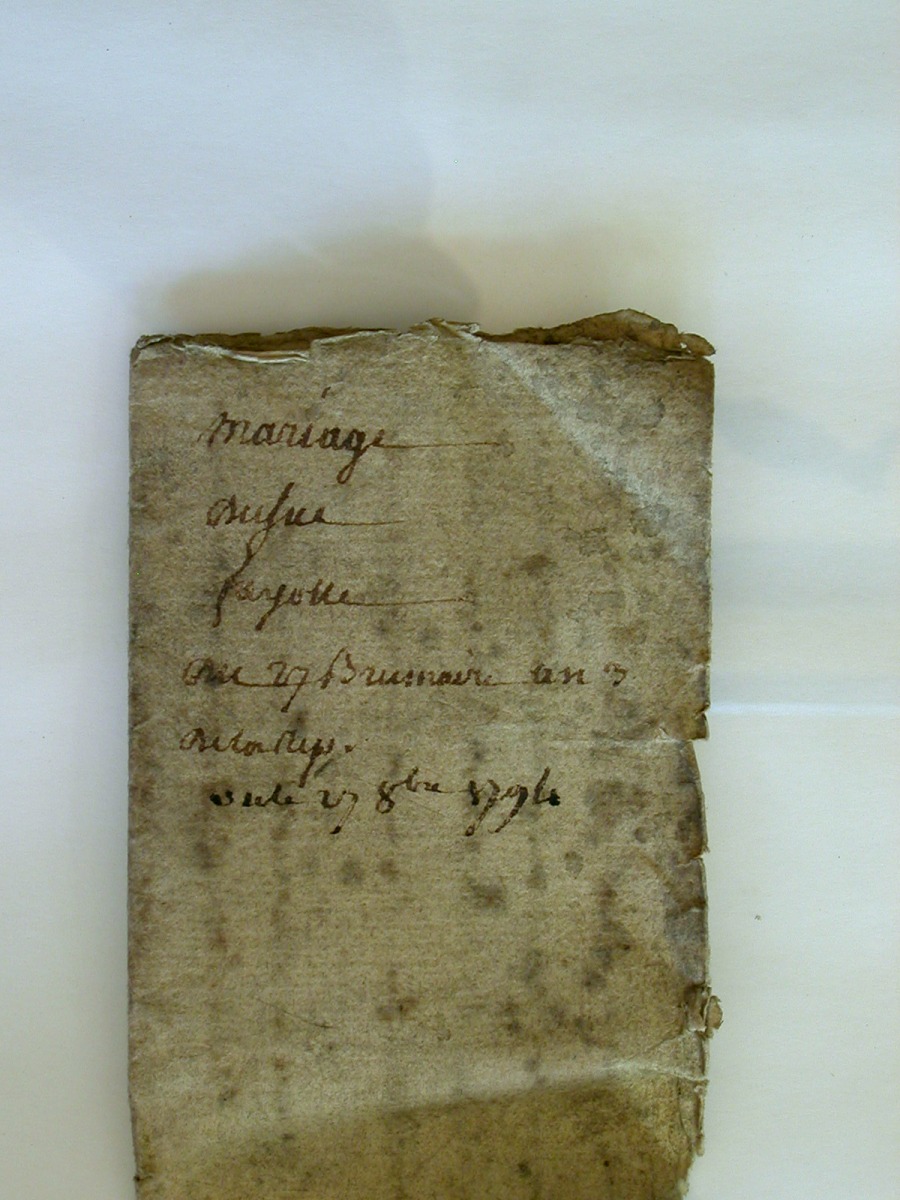 Mariage
Dusser
fayolle
Du 27 Brumaire an 3
De la Rep.
27 8bre 1794